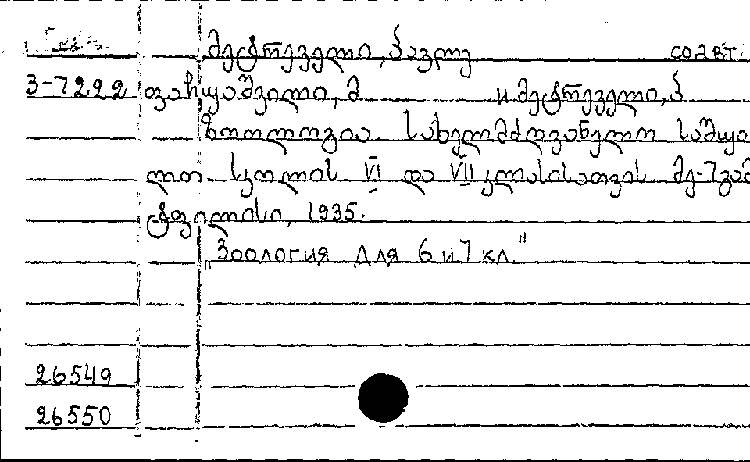 მეტრეველი, პავლე соавт.
3-7222 ფარჩაშვილი, მ и მეტრეველი, პ
ზოოლოგია. სახელმძღვანელო საშუა
ლო სკოლის VI და VII კლასისათვის მე-7 გამ
ტფილისი, 1935.
„Зоология для 6 и 7 кл."
26549
26550